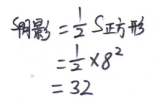 S阴影=1/2 S正方形
=1/2×8²
=32